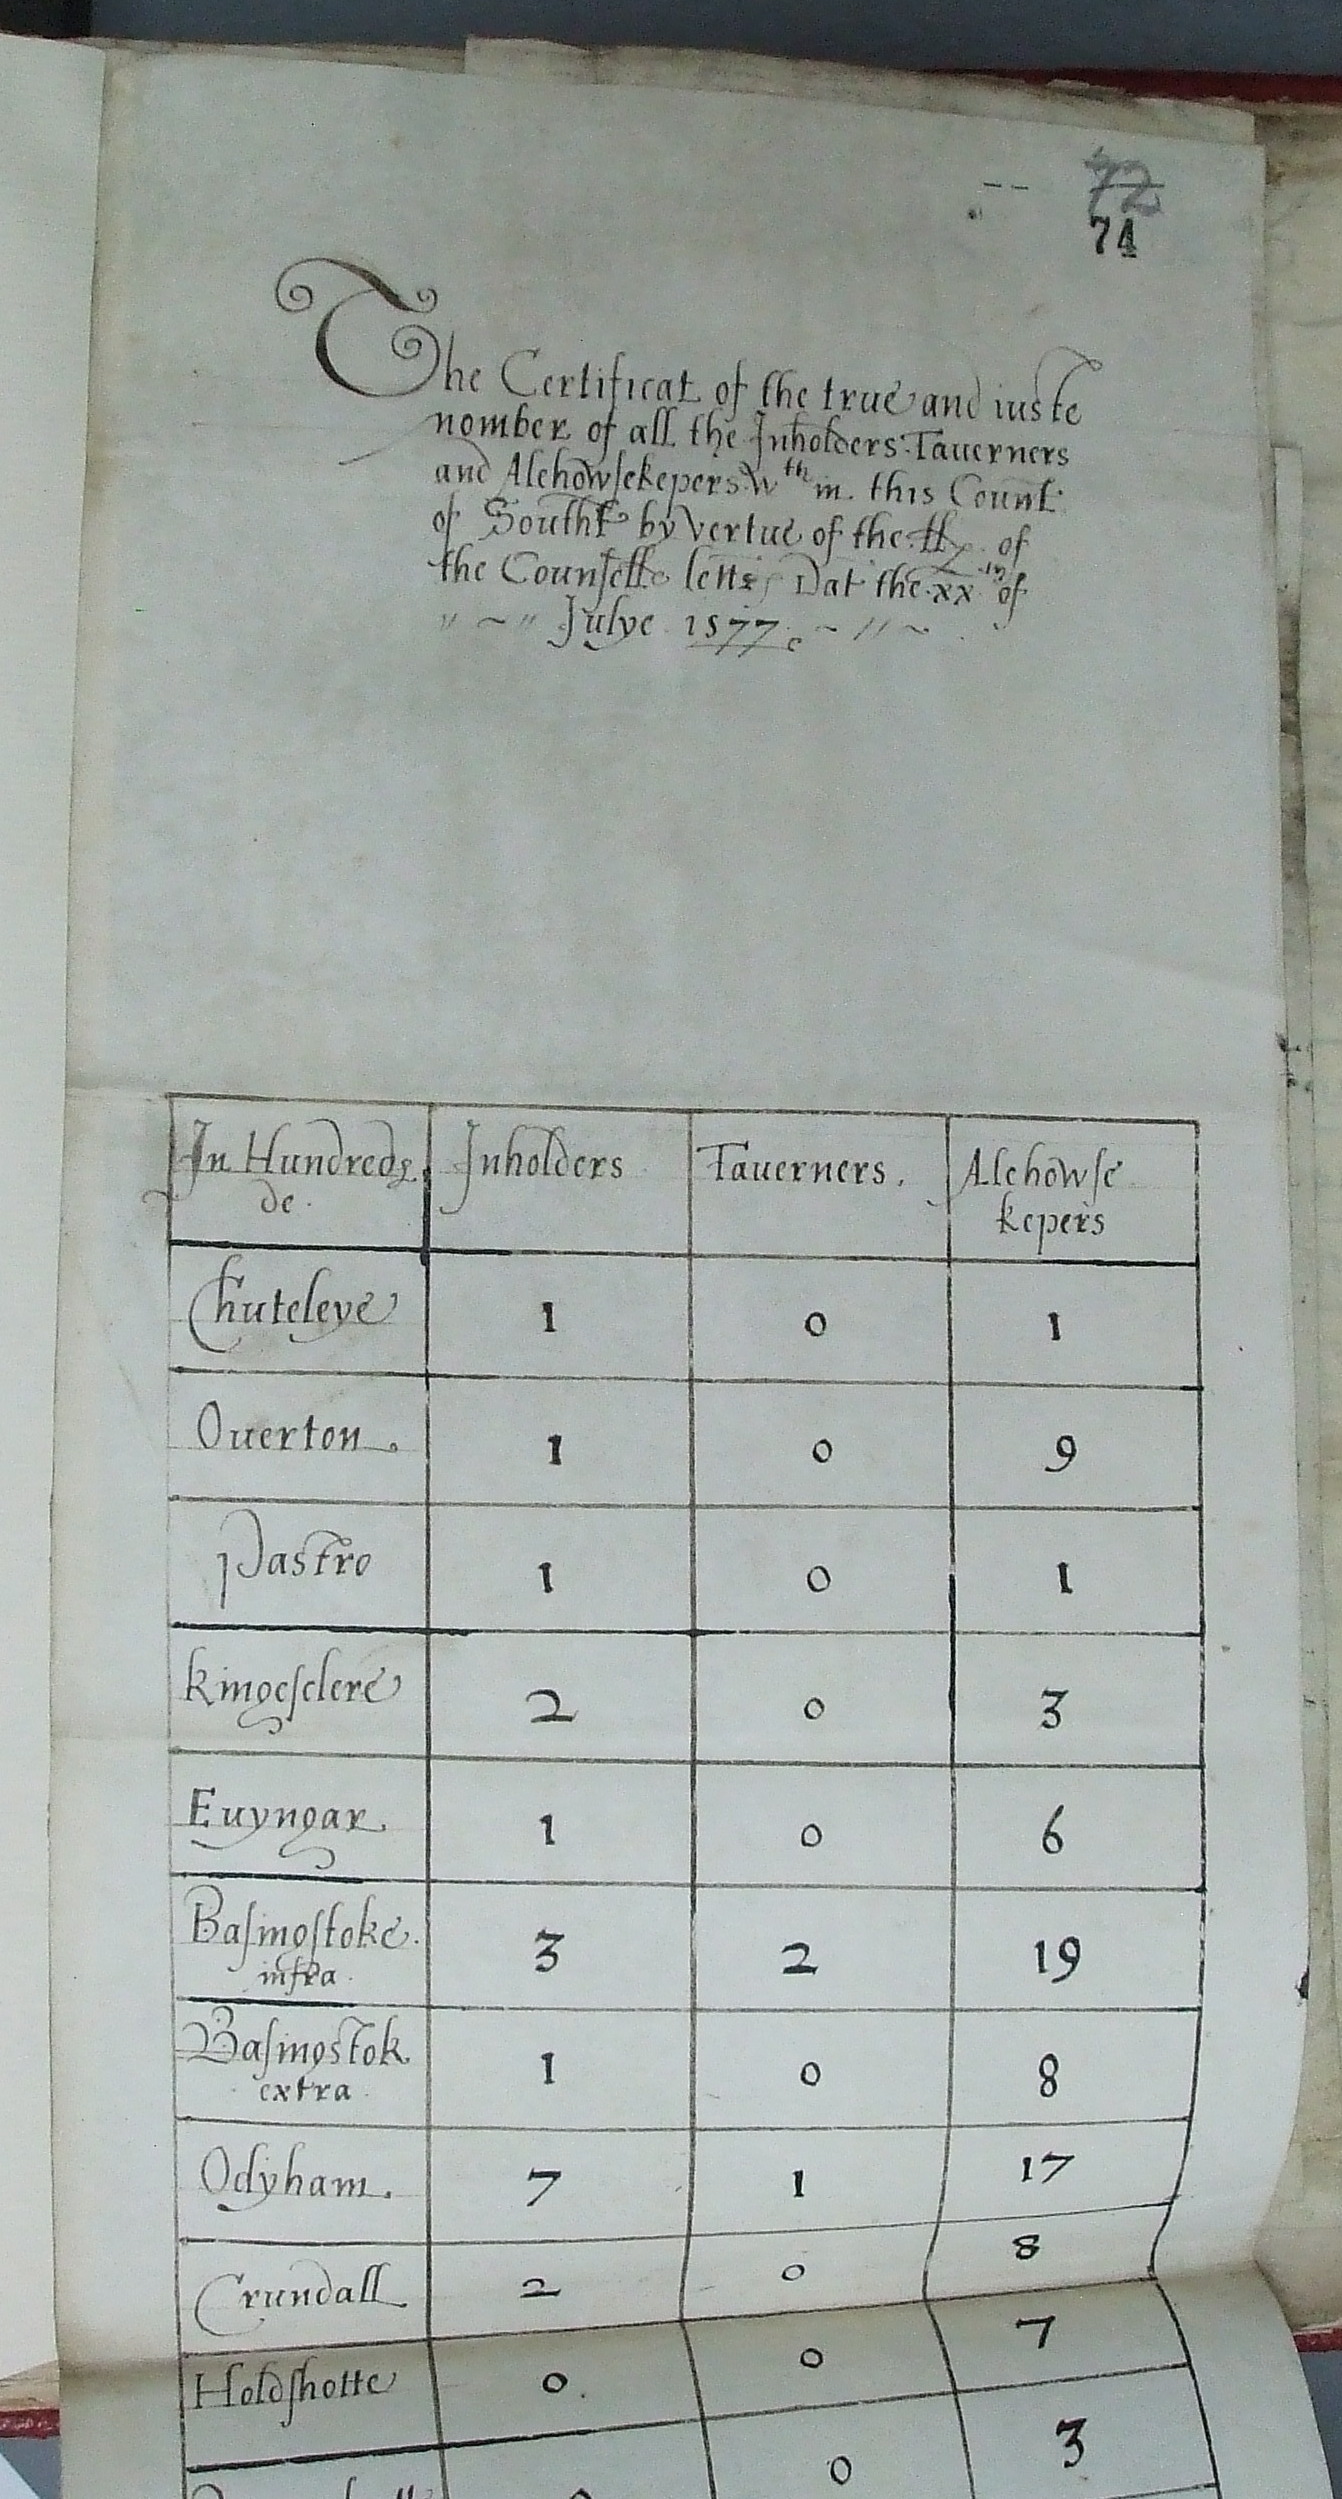 72
74
The Certificat of the true and iuste
nomber of all the Inholders Tauerners
and Alehowsekepers wth in this Count
of Southt by vertue of the of
the Counselles Dat the xxth of
Julye 1577
In Hundreds Inholders Tauerners. Alehowse
de. kepers
Chuteleye 1 0 1
Ouerton. 1 0 9
Pastro 1 0 1
kingesclere 2 0 3
Euyngar 1 0 6
Basingstoke 3 2 19
infra
Basingstok 1 0 8
extra
Odyham. 7 1 17
Crundall 2 0 8
Holdshotte 0 0 7
0 3